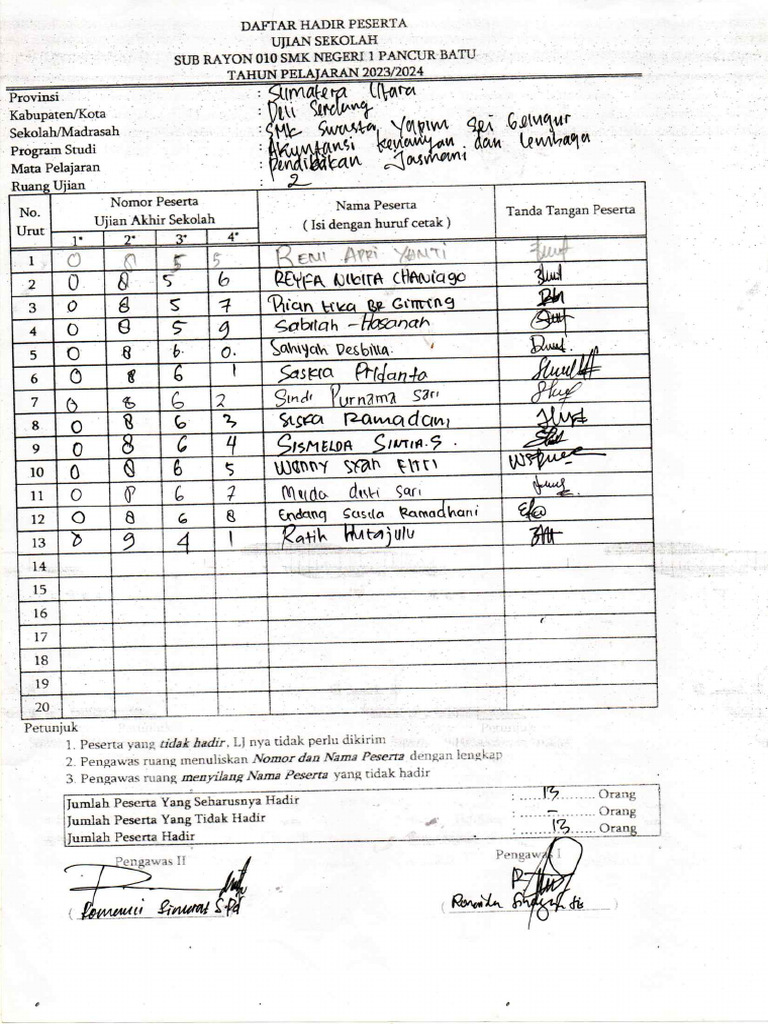 DAFTAR HADIR PESERTA
UJIAN SEKOLAH
SUB RAYON 010 SMK NEGERI 1 PANCUR BATU
TAHUN PELAJARAN 2023/2024
Provinsi : Sumatera Utara
Kabupaten/Kota : Deli Serdang
Sekolah/Madrasah : SMK Swasta Yapim Sei Gelugur
Program Studi : Akuntansi keuangan dan Lembaga
Mata Pelajaran : Pendidikan Jasmani
Ruang Ujian : 2
No. Urut Nomor Peserta Ujian Akhir Sekolah Nama Peserta ( Isi dengan huruf cetak ) Tanda Tangan Peserta
1* 2* 3* 4*
1 0 8 5 5 RENI APRI YANTI
2 0 8 5 6 REYFA NIKITA CHANIAGO
3 0 8 5 7 Rian Eika BR Ginting
4 0 8 5 9 Sabilah - Hasanah
5 0 8 6. 0. Sahiyah Desbilla.
6 0 8 6 1 Saskia Pridanta
7 0 8 6 2 Sindi Purnama Sari
8 0 8 6 3 SISKA Ramadani
9 0 8 6 4 SISMELDA SINTIA.S.
10 0 8 6 5 WENNY SYAH FITRI
11 0 8 6 7 Melda desti sari
12 0 8 6 8 Endang Susila Ramadhani
13 0 9 4 1 Ratih Hutajulu
14
15
16
17
18
19
20
Petunjuk
1. Peserta yang tidak hadir, LJ nya tidak perlu dikirim
2. Pengawas ruang menuliskan Nomor dan Nama Peserta dengan lengkap
3. Pengawas ruang menyilang Nama Peserta yang tidak hadir
Jumlah Peserta Yang Seharusnya Hadir : 13 Orang
Jumlah Peserta Yang Tidak Hadir : - Orang
Jumlah Peserta Hadir : 13 Orang
Pengawas II Pengawas I
S.Pd